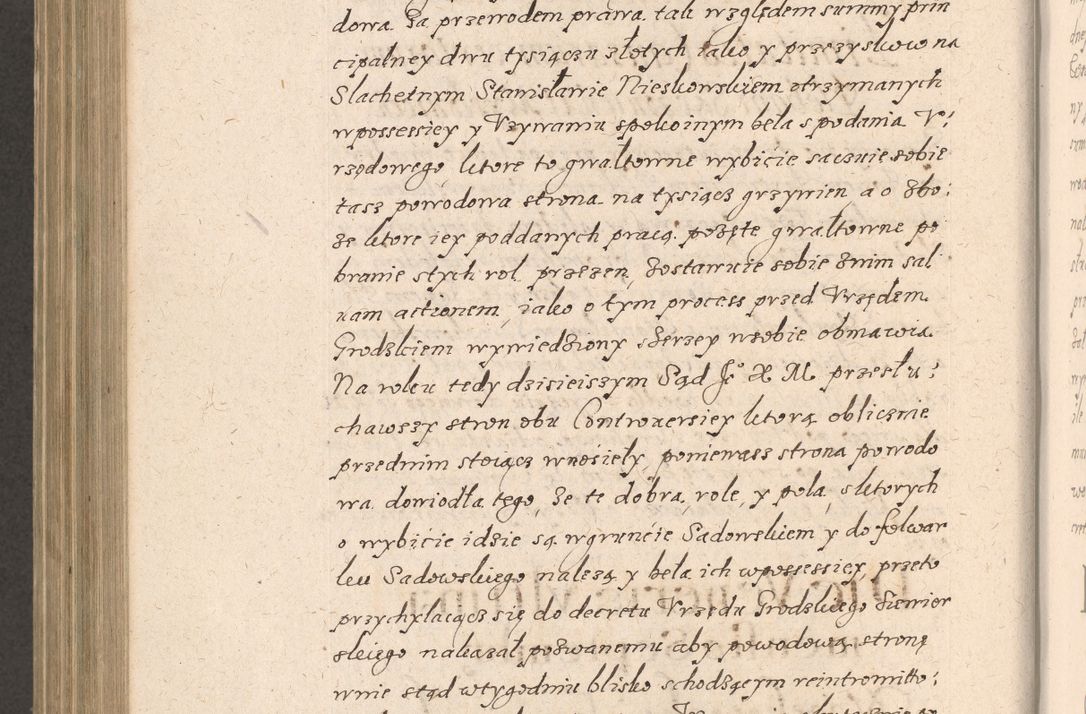 dowa. Za przewodem prawa tak względem summy prin
cipalney dwu tysiączu złotych iako y przezyskow na
Slachetnym Stanisławie Nieskowskiem otrzymanych
w possessiey y Vzywaniu spokoinym beła s podania V:
rzędowego, ktore to gwałtowne wybicie sacznie sobie
tasz powodowa strona na tysiącz grzywien a o zbo:
ze ktore iey poddanych pracą pozęte gwałtowne po
branie s tych rol przezen, zostawuie sobie z nim sal
uam actionem, iako o tym process przed Vrzędem
Grodzkiem wywiedziony szerzey w sobie obmawia.
Na roku tedy dzisieiszym Sąd J° X M. przesłu:
chawszy stron obu Controuersiey ktorą oblicznie
przed nim stoiącz wnosiely, poniewasz strona powodo
wa dowiodła tego, ze te dobra, role, y pola, s ktorych
o wybicie idzie są w gruncie Sadowskiem y do folwar
ku Sadowskiego nalezą y beła ich w possessiey, przeto
przychylaiącz się do decretu Vrzędu Grodzkiego Siewior
skiego nakazał pozwanemu aby powodową stronę
wnie stąd w tygodniu blisko schodzącym reintromitto: